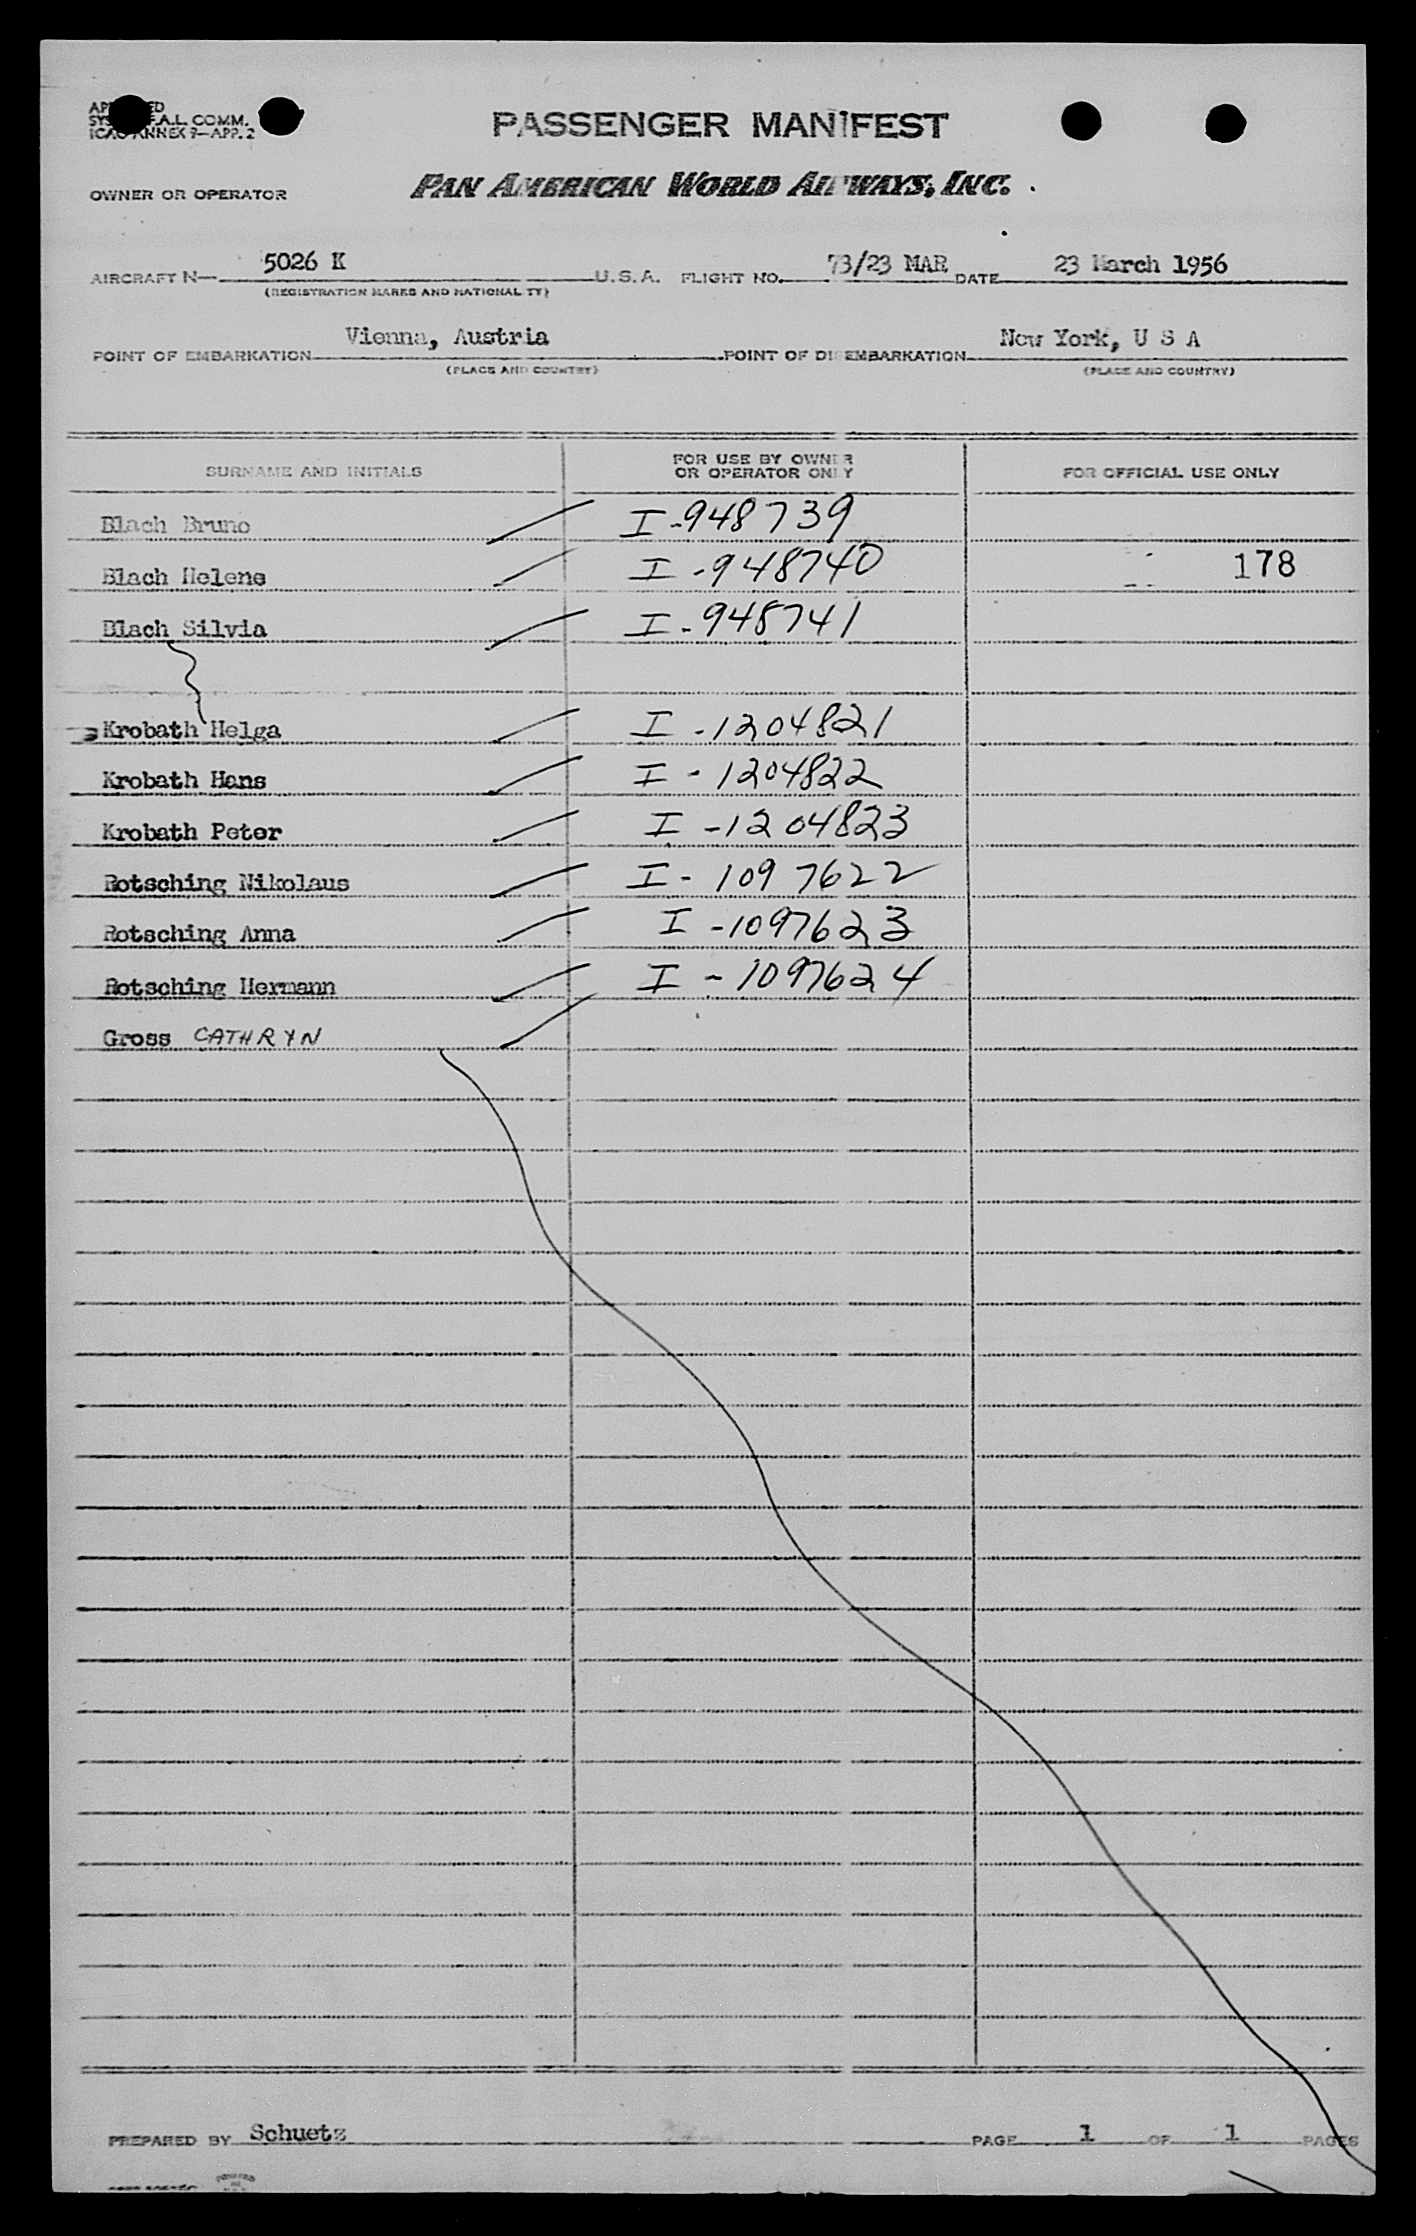 APPROVED
SYSTEM F.A.L. COMM.
ICAO ANNEX 9—APP. 2
PASSENGER MANIFEST
OWNER OR OPERATOR PAN AMERICAN WORLD AIRWAYS, INC.
AIRCRAFT N— 5026 K U.S.A. FLIGHT NO. 73/23 MAR DATE 23 March 1956
(REGISTRATION MARKS AND NATIONALITY)
POINT OF EMBARKATION Vienna, Austria POINT OF DISEMBARKATION New York, U S A
(PLACE AND COUNTRY) (PLACE AND COUNTRY)
SURNAME AND INITIALS FOR USE BY OWNER OR OPERATOR ONLY FOR OFFICIAL USE ONLY
Blach Bruno I-948739
Blach Helene I-948740 178
Blach Silvia I-948741
Krobath Helga I-1204821
Krobath Hans I-1204822
Krobath Peter I-1204823
Rotsching Nikolaus I-1097622
Rotsching Anna I-1097623
Rotsching Hermann I-1097624
Gross CATHRYN
PREPARED BY Schuetz PAGE 1 OF 1 PAGES